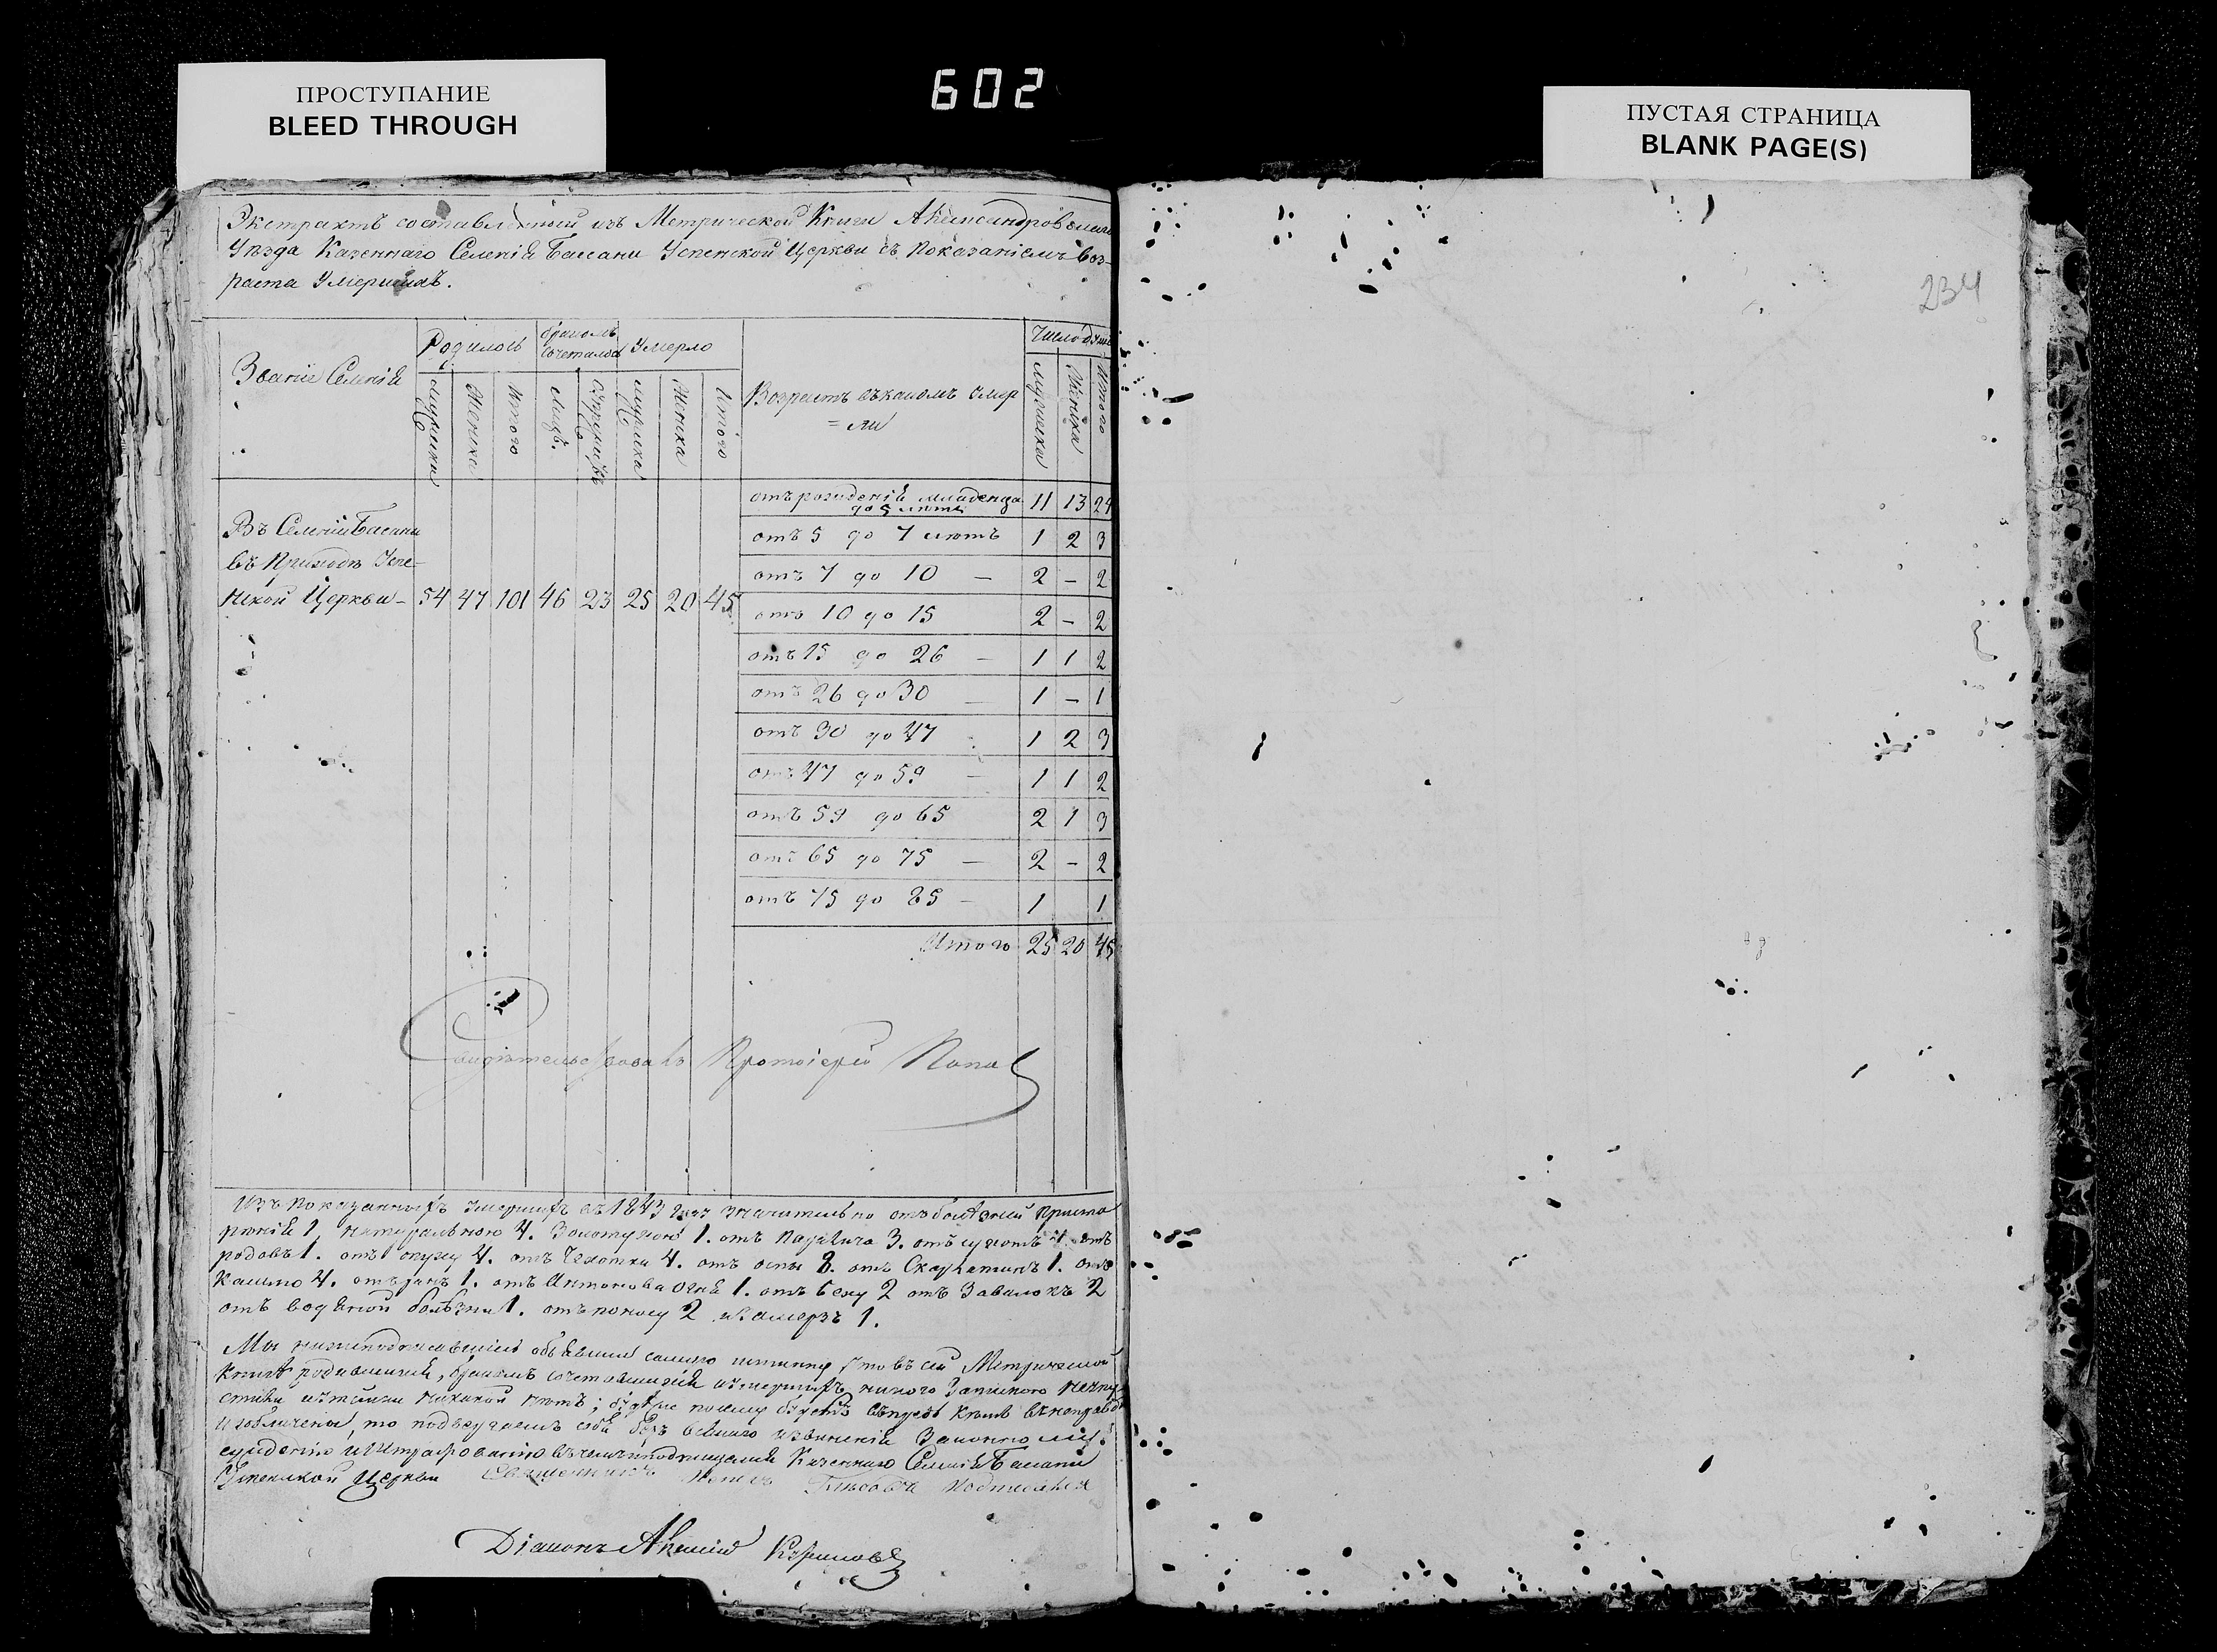 ПРОСТУПАНИЕ
BLEED THROUGH
602
ПУСТАЯ СТРАНИЦА
BLANK PAGE(S)
234
Экстрактъ составленный изъ Метрической Книги Александровскаго
Уѣзда Казеннаго Селенія Басани Успенской Церкви съ показаніемъ воз-
раста Умершихъ.
Званіе Селенія
Родилось
бракомъ сочеталось
Умерло
Возрастъ въ какомъ умер
= ли
Число душъ
мужеска
Женска
Итого
Лицъ.
Супружествъ
мужеска
Женска
Итого
мужеска
Женска
Итого
Въ Селеніи Басани
въ Приходѣ Успе-
нской Церкви - 54 47 101 46 23 25 20 45
отъ рожденія младенца
до 5 лѣтъ 11 13 24
отъ 5 до 7 лѣтъ 1 2 3
отъ 7 до 10 — 2 - 2
отъ 10 до 15 2 - 2
отъ 15 до 26 — 1 1 2
отъ 26 до 30 — 1 - 1
отъ 30 до 47 1 2 3
отъ 47 до 59 — 1 1 2
отъ 59 до 65 2 1 3
отъ 65 до 75 — 2 - 2
отъ 75 до 85 — 1 1
Итого 25 20 45
Свидѣтельствовалъ Протоіерей Попов
Изъ показанныхъ умершихъ въ 1843 году значительно отъ болѣзней
1, натуральною 4. Золотухою 1. отъ 3. отъ 4. отъ
родовъ 1. отъ 4. отъ Чахотки 4. отъ оспы 8. отъ 1. отъ
Кашлю 4. отъ ранъ 1. отъ Антонова огня 1. отъ 2 отъ Завалокъ 2
отъ водяной болѣзни 1. отъ поносу 2 и замерзъ 1.
Мы нижеподписавшіеся объявили самую истинну что въ сей Метрической
Книгѣ родившихся, бракомъ сочетавшихся и умершихъ
никакой нѣтъ;
то подвергаемъ себя безъ всякаго извиненія Законному
сужденію и Штрафованію въ чемъ и подписуемся Казеннаго Селенія Басани
Успенской Церкви Священникъ подписался
Діаконъ Алексій